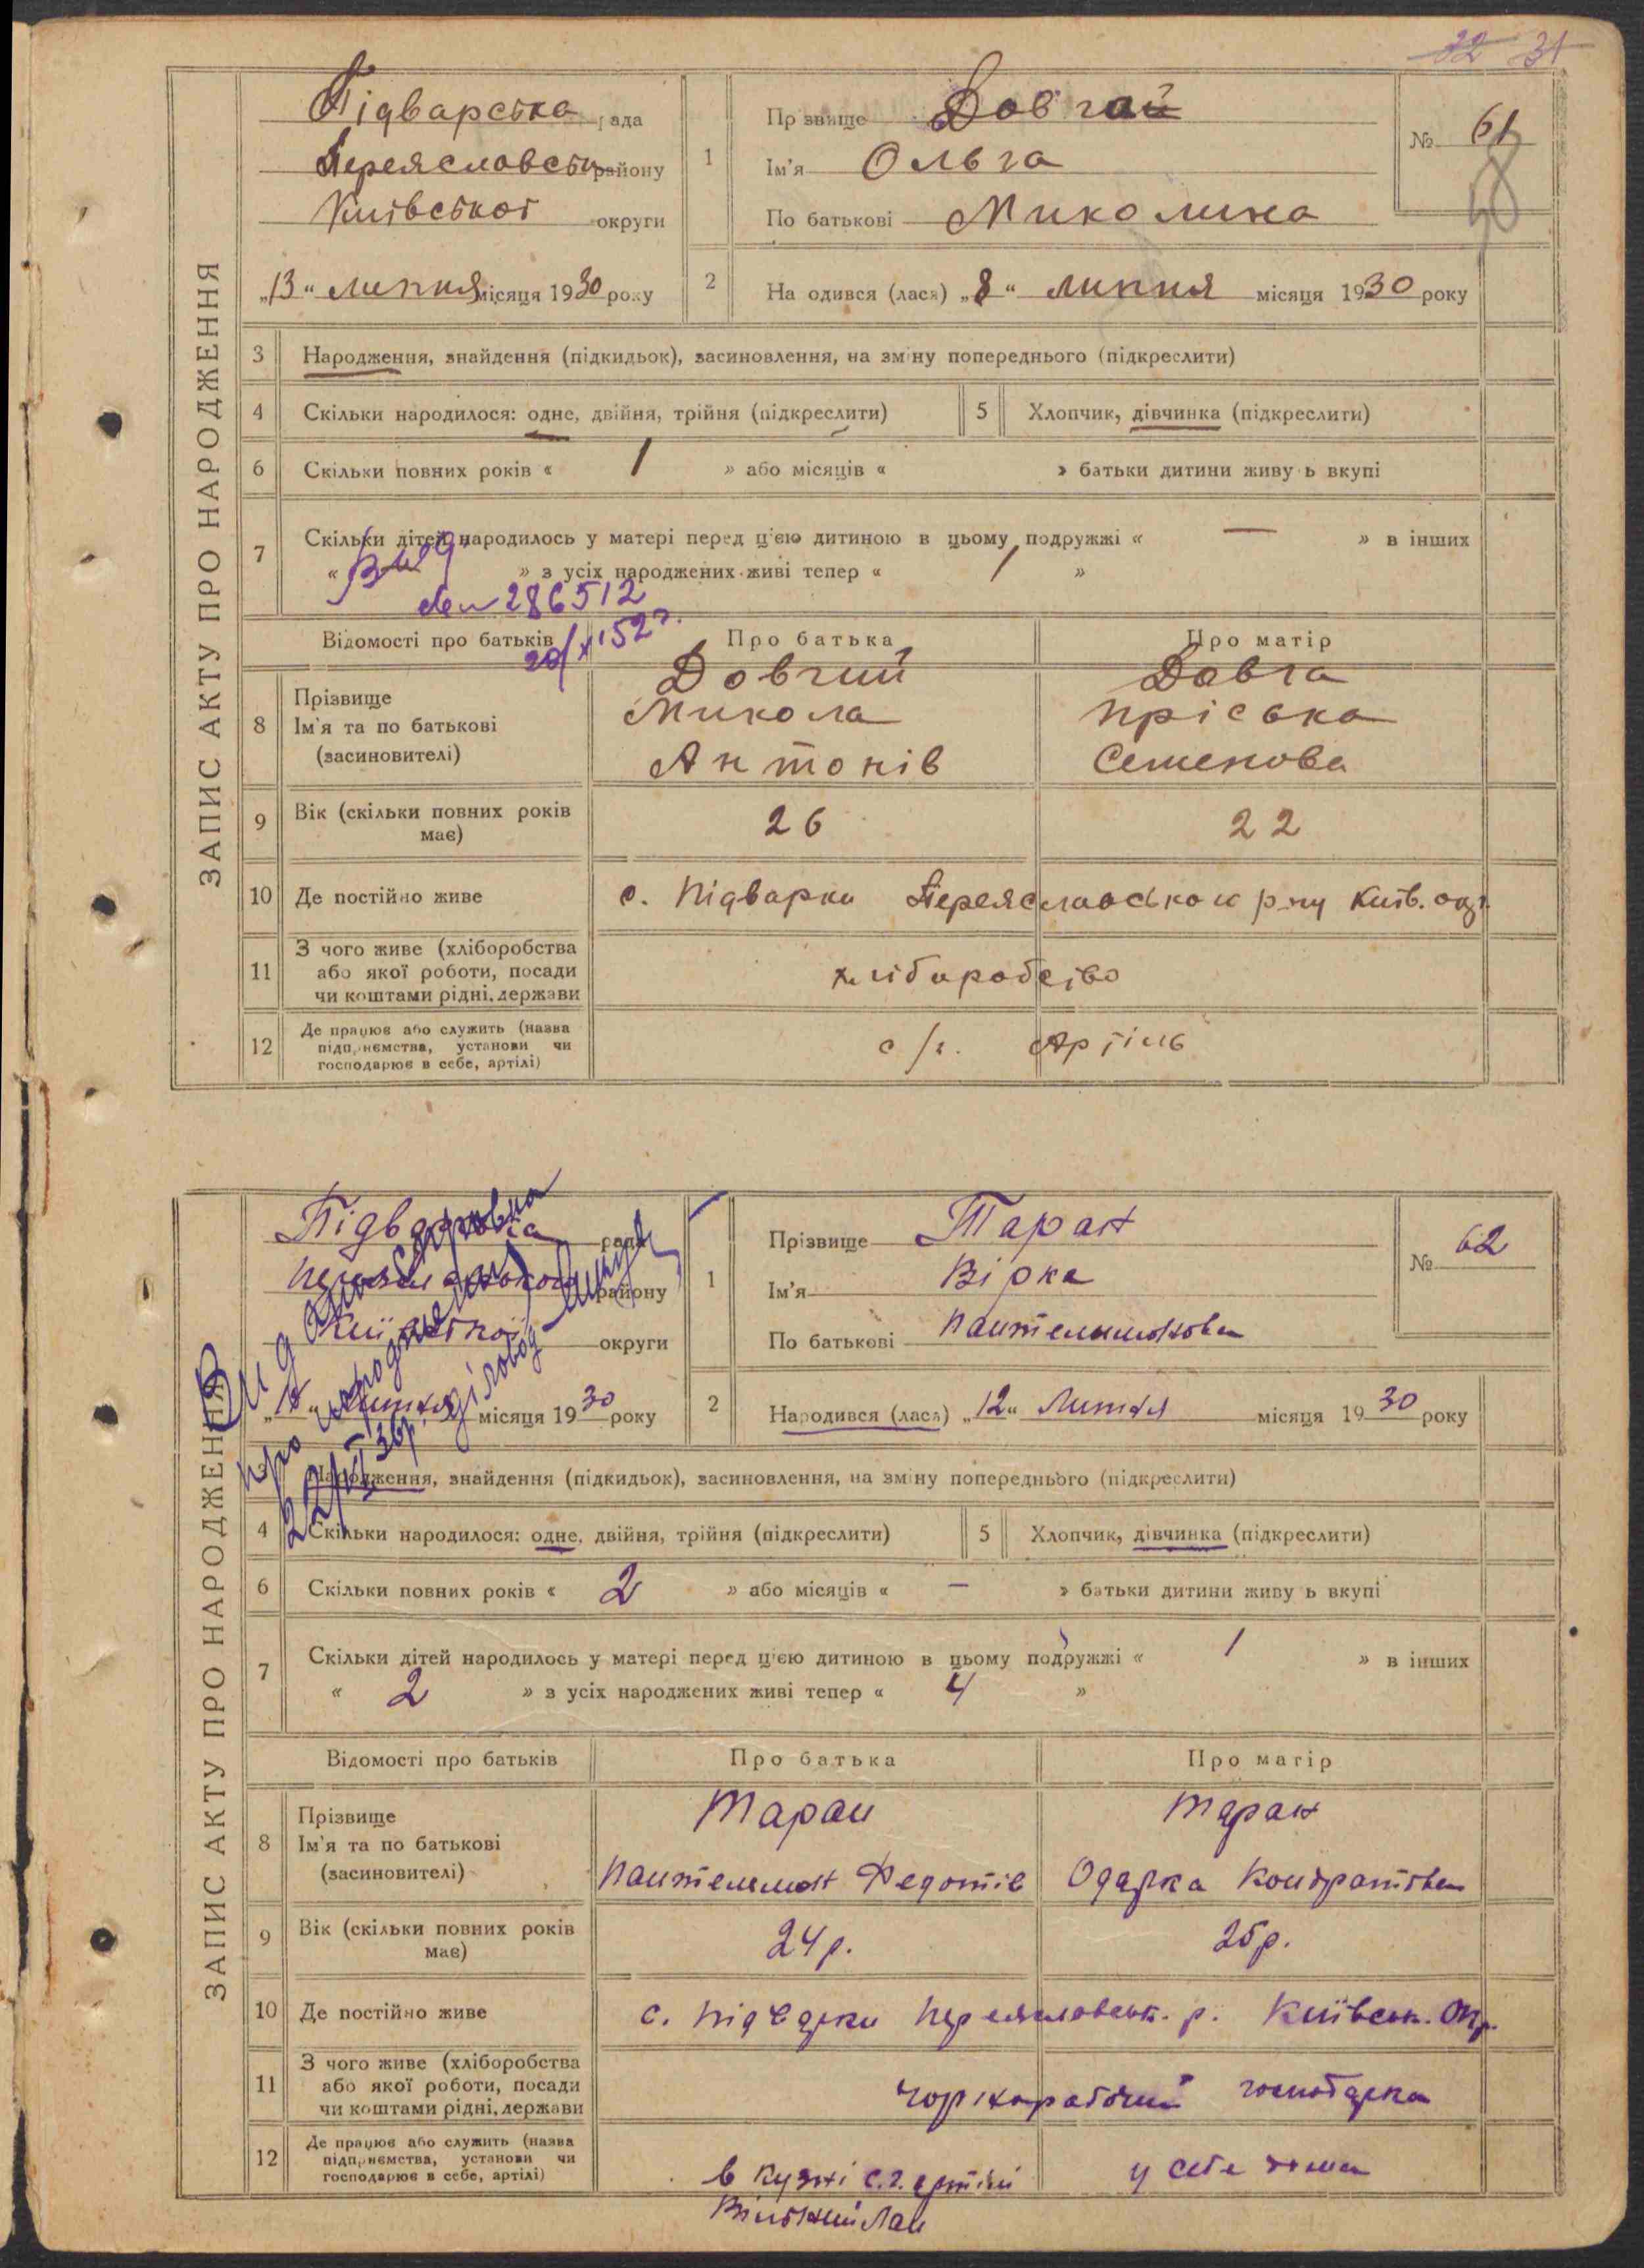 32 31
ЗАПИС АКТУ ПРО НАРОДЖЕННЯ
Підварська рада
Переяславськ району
Київської округи
„13“ липня місяця 1930 року
1
Прізвище Довгай
Ім'я Ольга
По батькові Миколина
№ 61
2
Народився (лася) „8“ липня місяця 1930 року
3 Народження, знайдення (підкидьок), засиновлення, на зміну попереднього (підкреслити)
4 Скільки народилося: одне, двійня, трійня (підкреслити)
5 Хлопчик, дівчинка (підкреслити)
6 Скільки повних років « 1 » або місяців « » батьки дитини живуть вкупі
7 Скільки дітей народилось у матері перед цією дитиною в цьому подружжі « — » в інших
« » з усіх народжених живі тепер « 1 »
286512
20/XI 52 г.
Відомості про батьків Про батька Про матір
8 Прізвище Довгий Довга
Ім'я та по батькові Микола Пріська
(засиновителі) Антонів Семенова
9 Вік (скільки повних років має) 26 22
10 Де постійно живе с. Підварки Переяславського р-ну Київ. окр.
11 З чого живе (хліборобства
або якої роботи, посади
чи коштами рідні, держави
хліборобство
12 Де працює або служить (назва
підприємства, установи чи
господарює в себе, артілі)
с/г. Артіль
ЗАПИС АКТУ ПРО НАРОДЖЕННЯ
Підварська рада
Переяславського району
Київської округи
місяця 1930 року
про народження
діловод
1
Прізвище Таран
Ім'я Вірка
По батькові Пантелимонова
№ 62
2
Народився (лася) „12“ Липня місяця 1930 року
3 Народження, знайдення (підкидьок), засиновлення, на зміну попереднього (підкреслити)
4 Скільки народилося: одне, двійня, трійня (підкреслити)
5 Хлопчик, дівчинка (підкреслити)
6 Скільки повних років « 2 » або місяців « – » батьки дитини живуть вкупі
7 Скільки дітей народилось у матері перед цією дитиною в цьому подружжі « 1 » в інших
« 2 » з усіх народжених живі тепер « 4 »
Відомості про батьків Про батька Про матір
8 Прізвище Таран Таран
Ім'я та по батькові
(засиновителі) Пантелемон Федотів Одарка Кондратова
9 Вік (скільки повних років має) 24 р. 25 р.
10 Де постійно живе с. Підварки Переяславськ. р. Київськ. Окр.
11 З чого живе (хліборобства
або якої роботи, посади
чи коштами рідні, держави
чорноробочий господарка
12 Де працює або служить (назва
підприємства, установи чи
господарює в себе, артілі)
в кузні с.г. артілі у себе дома
Вільний Лан